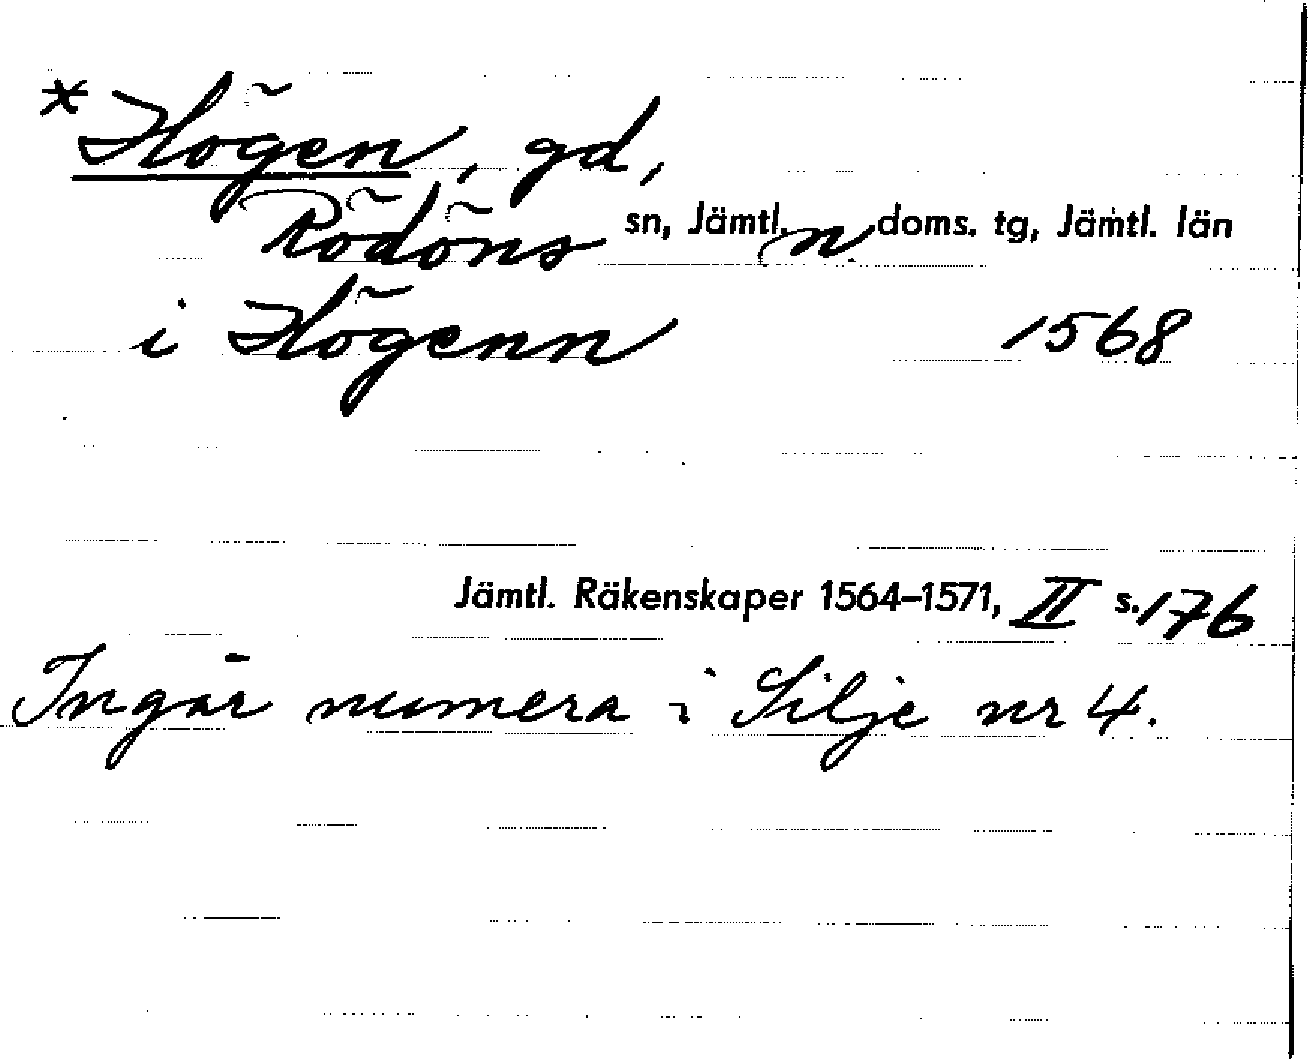 *Högen, gd,
Rödöns sn, Jämtl. n. doms. tg, Jämtl. län
i Högenn 1568
Jämtl. Räkenskaper 1564–1571, II s. 176
Ingår numera i Silje nr 4.